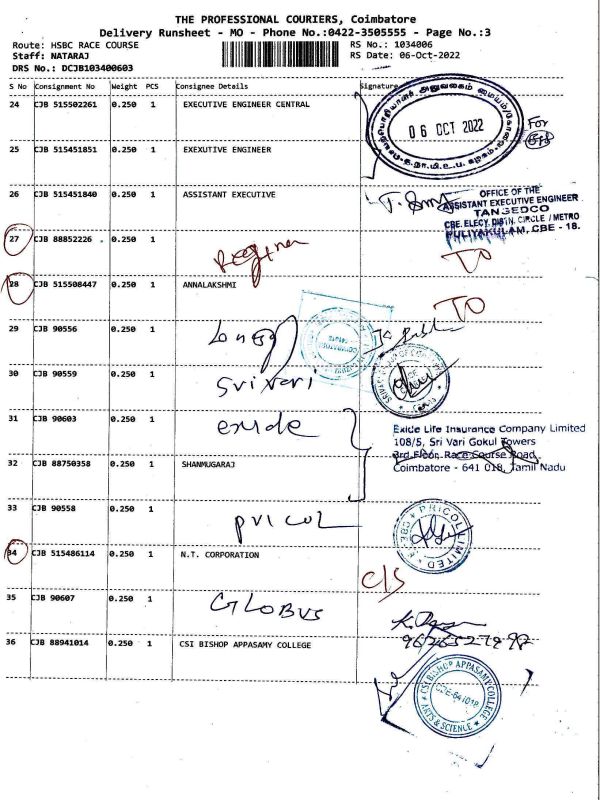 THE PROFESSIONAL COURIERS, Coimbatore
Delivery Runsheet - MO - Phone No.:0422-3505555 - Page No.:3
Route: HSBC RACE COURSE
RS No.: 1034006
Staff: NATARAJ
RS Date: 06-Oct-2022
DRS No.: DCJB103400603
S No Consignment No Weight PCS Consignee Details Signature
24 CJB 515502261 0.250 1 EXECUTIVE ENGINEER CENTRAL
06 OCT 2022
For
25 CJB 515451851 0.250 1 EXEXUTIVE ENGINEER
26 CJB 515451840 0.250 1 ASSISTANT EXECUTIVE
OFFICE OF THE
ASSISTANT EXECUTIVE ENGINEER
TANGEDCO
CBE. ELECY. DISTN. CIRCLE / METRO
PULIYAKULAM, CBE - 18.
27 CJB 88852226 0.250 1
TO
28 CJB 515508447 0.250 1 ANNALAKSHMI
TO
29 CJB 90556 0.250 1
30 CJB 90559 0.250 1 Srivari
31 CJB 90603 0.250 1 exide
Exide Life Insurance Company Limited
108/5, Sri Vari Gokul Towers
3rd Floor, Race Course Road
Coimbatore - 641 018, Tamil Nadu
32 CJB 88750358 0.250 1 SHANMUGARAJ
33 CJB 90558 0.250 1 pricol
PRICOL LIMITED
34 CJB 515486114 0.250 1 N.T. CORPORATION
C/S
35 CJB 90607 0.250 1 GLOBUS
36 CJB 88941014 0.250 1 CSI BISHOP APPASAMY COLLEGE
CSI BISHOP APPASAMY COLLEGE
CBE-641018
ARTS & SCIENCE